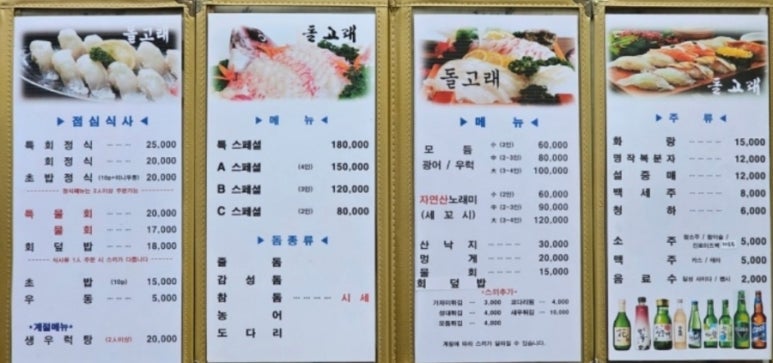 돌고래
▶ 점심식사 ◀
특 회 정 식 --- 25,000
회 정 식 --- 20,000
초 밥 정 식 (10p+미니우동) 20,000
---정식메뉴는 2人이상 주문가능---
특 물 회 --- 20,000
물 회 --- 17,000
회 덮 밥 --- 18,000
---식사류 1人 주문 시 스끼가 다릅니다---
초 밥 (10p) 15,000
우 동 --- 5,000
*계절메뉴*
생 우 럭 탕 (2人이상) 20,000
돌고래
▶ 메 뉴 ◀
특 스페셜 180,000
A 스페셜 (4인) 150,000
B 스페셜 (3인) 120,000
C 스페셜 (2인) 80,000
▶ 돔종류 ◀
줄 돔
감 성 돔
참 돔 --- 시 세
농 어
도 다 리
돌고래
▶ 메 뉴 ◀
모 듬 小 (2인) 60,000
광어 / 우럭 中 (2~3인) 80,000
大 (3~4인) 100,000
자연산노래미 小 (2인) 60,000
(세 꼬 시) 中 (2~3인) 90,000
大 (3~4인) 120,000
산 낙 지 ---- 30,000
멍 게 ---- 20,000
물 회 ---- 15,000
회 덮 밥
*스끼추가*
가자미튀김 - 3,000 코다리찜 - 4,000
성대튀김 - 4,000 새우튀김 - 10,000
모듬튀김 - 4,000
계절에 따라 스끼가 달라질 수 있습니다.
돌고래
▶ 주 류 ◀
화 랑 ---- 15,000
명 작 복 분 자 ---- 12,000
설 중 매 ---- 12,000
백 세 주 ---- 8,000
청 하 ---- 6,000
소 주 참소주 / 참이슬 / 진로이즈백 5,000
맥 주 카스 / 테라 5,000
음 료 수 칠성 사이다 / 펩시 2,000